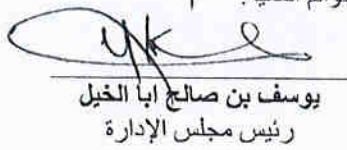 يوسف بن صالح ابا الخيل
رئيس مجلس الإدارة